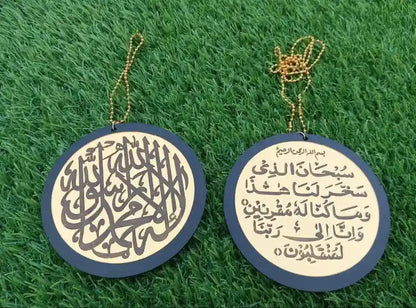 لا إله إلا الله محمد رسول الله
بسم الله الرحمن الرحيم
سبحان الذي
سخر لنا هذا
وما كنا له مقرنين
وإنا إلى ربنا
لمنقلبون